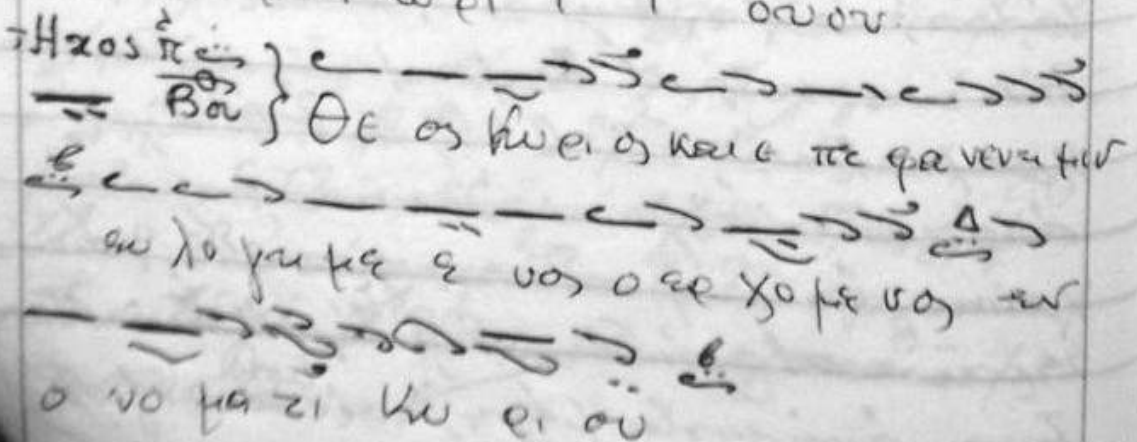 ουου
Ηχος π Βου
Θε ος Κυ ρι ος και ε πε φα νεν η μιν
ευ λο γη με ε νος ο ερ χο με νος εν
ο νο μα τι Κυ ρι ου